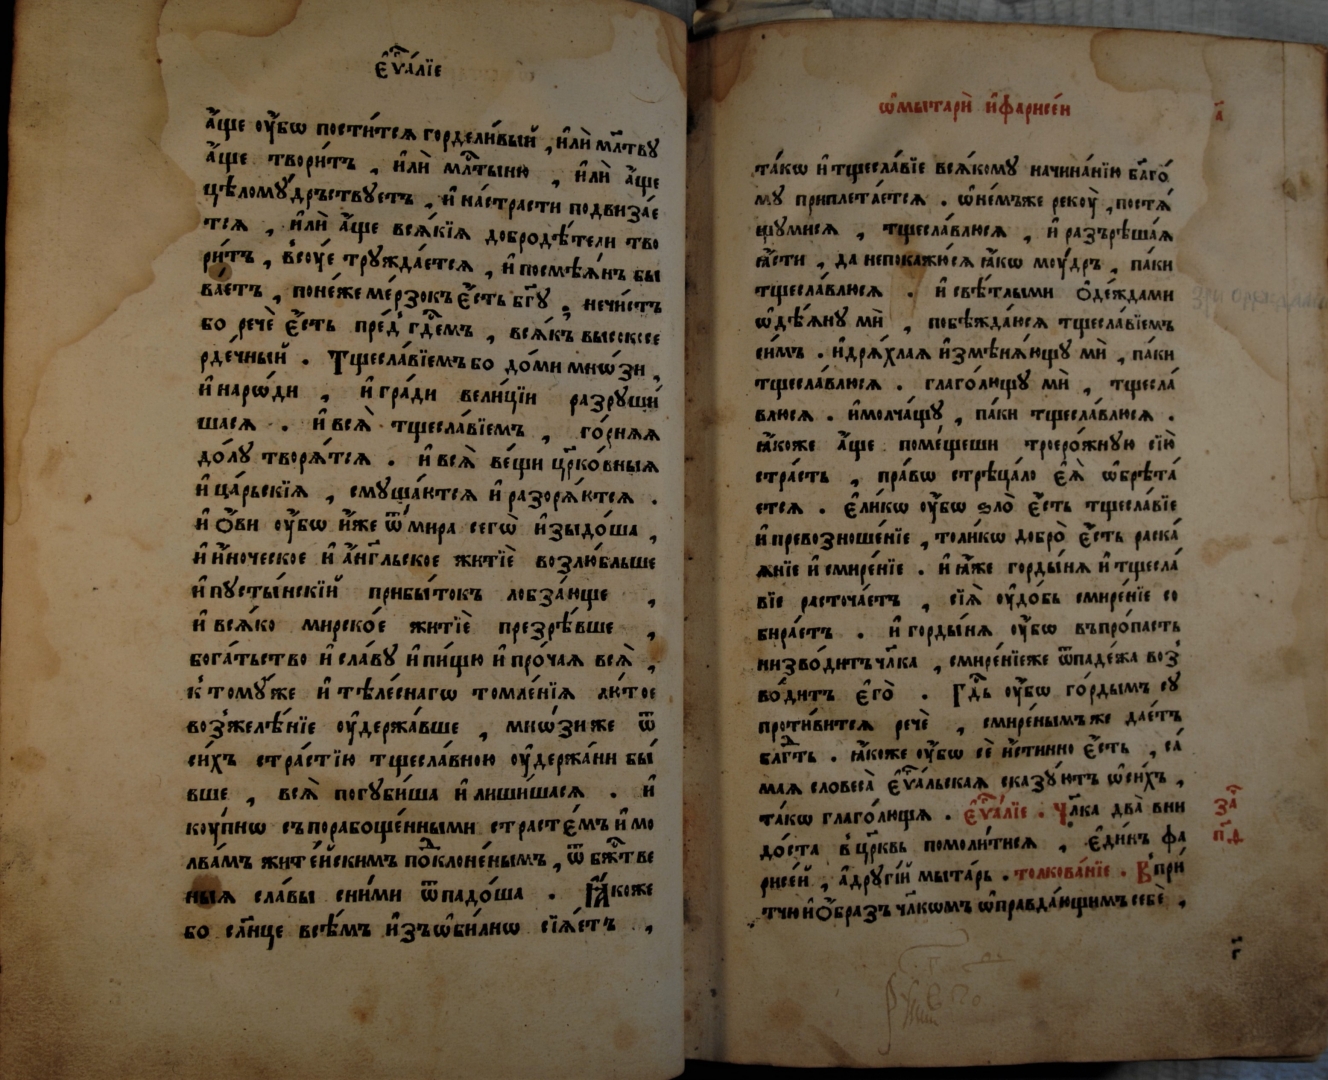 є҆ѵⷢ҇а́лїе
а҆́ще ᲂу҆́бѡ пости́тсѧ горделивый , и҆лѝ мл҃тву
а҆́ще твори́тъ , и҆лѝ млⷭ҇тыню , и҆лѝ а҆́ще
цѣломѹ́дрьствуетъ , и҆ на́страсти подвиза́е
тсѧ , и҆лѝ а҆́ще всѧ́кїѧ добродѣ́тели тво
ри́тъ , всѹ́е трѹжда́етсѧ , и҆ посмѣѧ́нъ бы
ва́етъ , поне́же ме́рзокъ є҆́сть бг҃у , нечи́стъ
бо речѐ є҆́сть пре́дъ гдⷭ҇емъ , всѧ́къ высокосе
рде́чный . Тщесла́вїемъ бо до́ми мнѡ́зи ,
и҆ наро́ди , и҆ гра́ди вели́цїи разруши́
шасѧ . и҆ всѧ̀ тщесла́вїемъ , го́рнѧѧ
до́лу творѧ́тсѧ . и҆ всѧ̀ ве́щи цр҃ко́вныѧ
и҆ ца́рьскїѧ , смуща́ютсѧ и҆ разорѧ́ютсѧ .
и҆ ѻ҆́ви ᲂу҆́бѡ и҆́же ѿ мира сегѡ̀ и҆зыдо́ша ,
и҆ и҆́ноческое и҆ а҆́нг҃льское житїѐ возлю́бльше
и҆ пусты́нскїй прибы́токъ лобза́юще ,
и҆ всѧ́ко мирско́е житїѐ презрѣ́вше ,
бога́тьство и҆ сла́ву и҆ пи́щю и҆ про́чаѧ всѧ̀ ,
к томѹ́же и҆ тѣле́снагѡ томле́нїѧ лю́тое
возжелѣ́нїе ᲂу҆держа́вше , мнѡ́зи же ѿ
си́хъ стра́стїю тщесла́вною ᲂу҆держа́ни бы́
вше , всѧ̀ погуби́ша и҆ лиши́шасѧ . и҆
кѹ́пнѡ съ порабоще́нными страсте́мъ и҆ мо
лва́мъ жите́йскимъ покⷣлоне́нымъ , ѿ бжⷭ҇тве
ныѧ сла́вы сни́ми ѿпадо́ша . Ꙗ҆́коже
бо сл҃нце всѣ́мъ и҆зъѡ҆би́лнѡ сїѧ́етъ ,
ѡ҆ мытарѝ и҆ фарисе́и
а҃
та́кѡ и҆ тщесла́вїе всѧ́кому начина́нїю бл҃го́
му приплета́етсѧ . ѡ҆ не́мъже рекѹ̀ , постѧ́
щумисѧ , тщесла́влюсѧ , и҆ разърѣша́ѧ
ꙗ҆́сти , да не покажу́сѧ ꙗ҆́кѡ мѹ́дръ , па́ки
тщесла́влюсѧ . и҆ свѣ́тлыми ѻ҆де́ждами
ѡ҆дѣ́ѧну мѝ , побѣжда́юсѧ тщесла́вїемъ
симъ . и҆ дрѧ́хлаѧ и҆змѣнѧ́ющу мѝ , па́ки
тщесла́влюсѧ . глаго́лющу мѝ , тщесла́
влюсѧ . и҆ молча́щу , па́ки тщесла́влюсѧ .
ꙗ҆́коже а҆́ще поме́щеши троеро́жную сїю̀
стра́сть , пра́вѡ стрѣца́ло є҆ѧ̀ ѡ҆брѣта́
етсѧ . є҆ли́кѡ ᲂу҆́бѡ ѕло̀ є҆́сть тщесла́вїе
и҆ превозноше́нїе , толи́кѡ добро̀ є҆́сть раска́
ѧнїе и҆ смире́нїе . и҆ ꙗ҆́же горды́нѧ и҆ тщесла́
вїе расточа́етъ , сїѧ̀ ᲂу҆до́бь смире́нїе со
бира́етъ . и҆ горды́нѧ ᲂу҆́бѡ въ про́пасть
низво́дитъ чл҃ка , смире́нїеже ѿпаде́жа воз
во́дитъ є҆го̀ . Гдⷭ҇ь ᲂу҆́бѡ го́рдымъ су
проти́витсѧ речѐ , смире́нымъже дае́тъ
блгⷣть . ꙗ҆́коже ᲂу҆́бѡ сѐ и҆́стинно є҆́сть , са́
маѧ словеса̀ є҆ѵⷢ҇а́льскаѧ сказу́ютъ ѡ҆ си́хъ ,
та́кѡ глаго́лющѧ . є҆ѵⷢ҇а́лїе . Чл҃ка два̀ вни
до́ста в цр҃ковь помоли́тисѧ , є҆ди́нъ фа
рисе́й , а҆ другі́й мыта́рь . толкова́нїе . В при́
тчи и҆ ѻ҆́бразъ чл҃кѡмъ ѡ҆правда́ющимъ себѐ ,
заⷱ҇
п҃ѳ
г҃